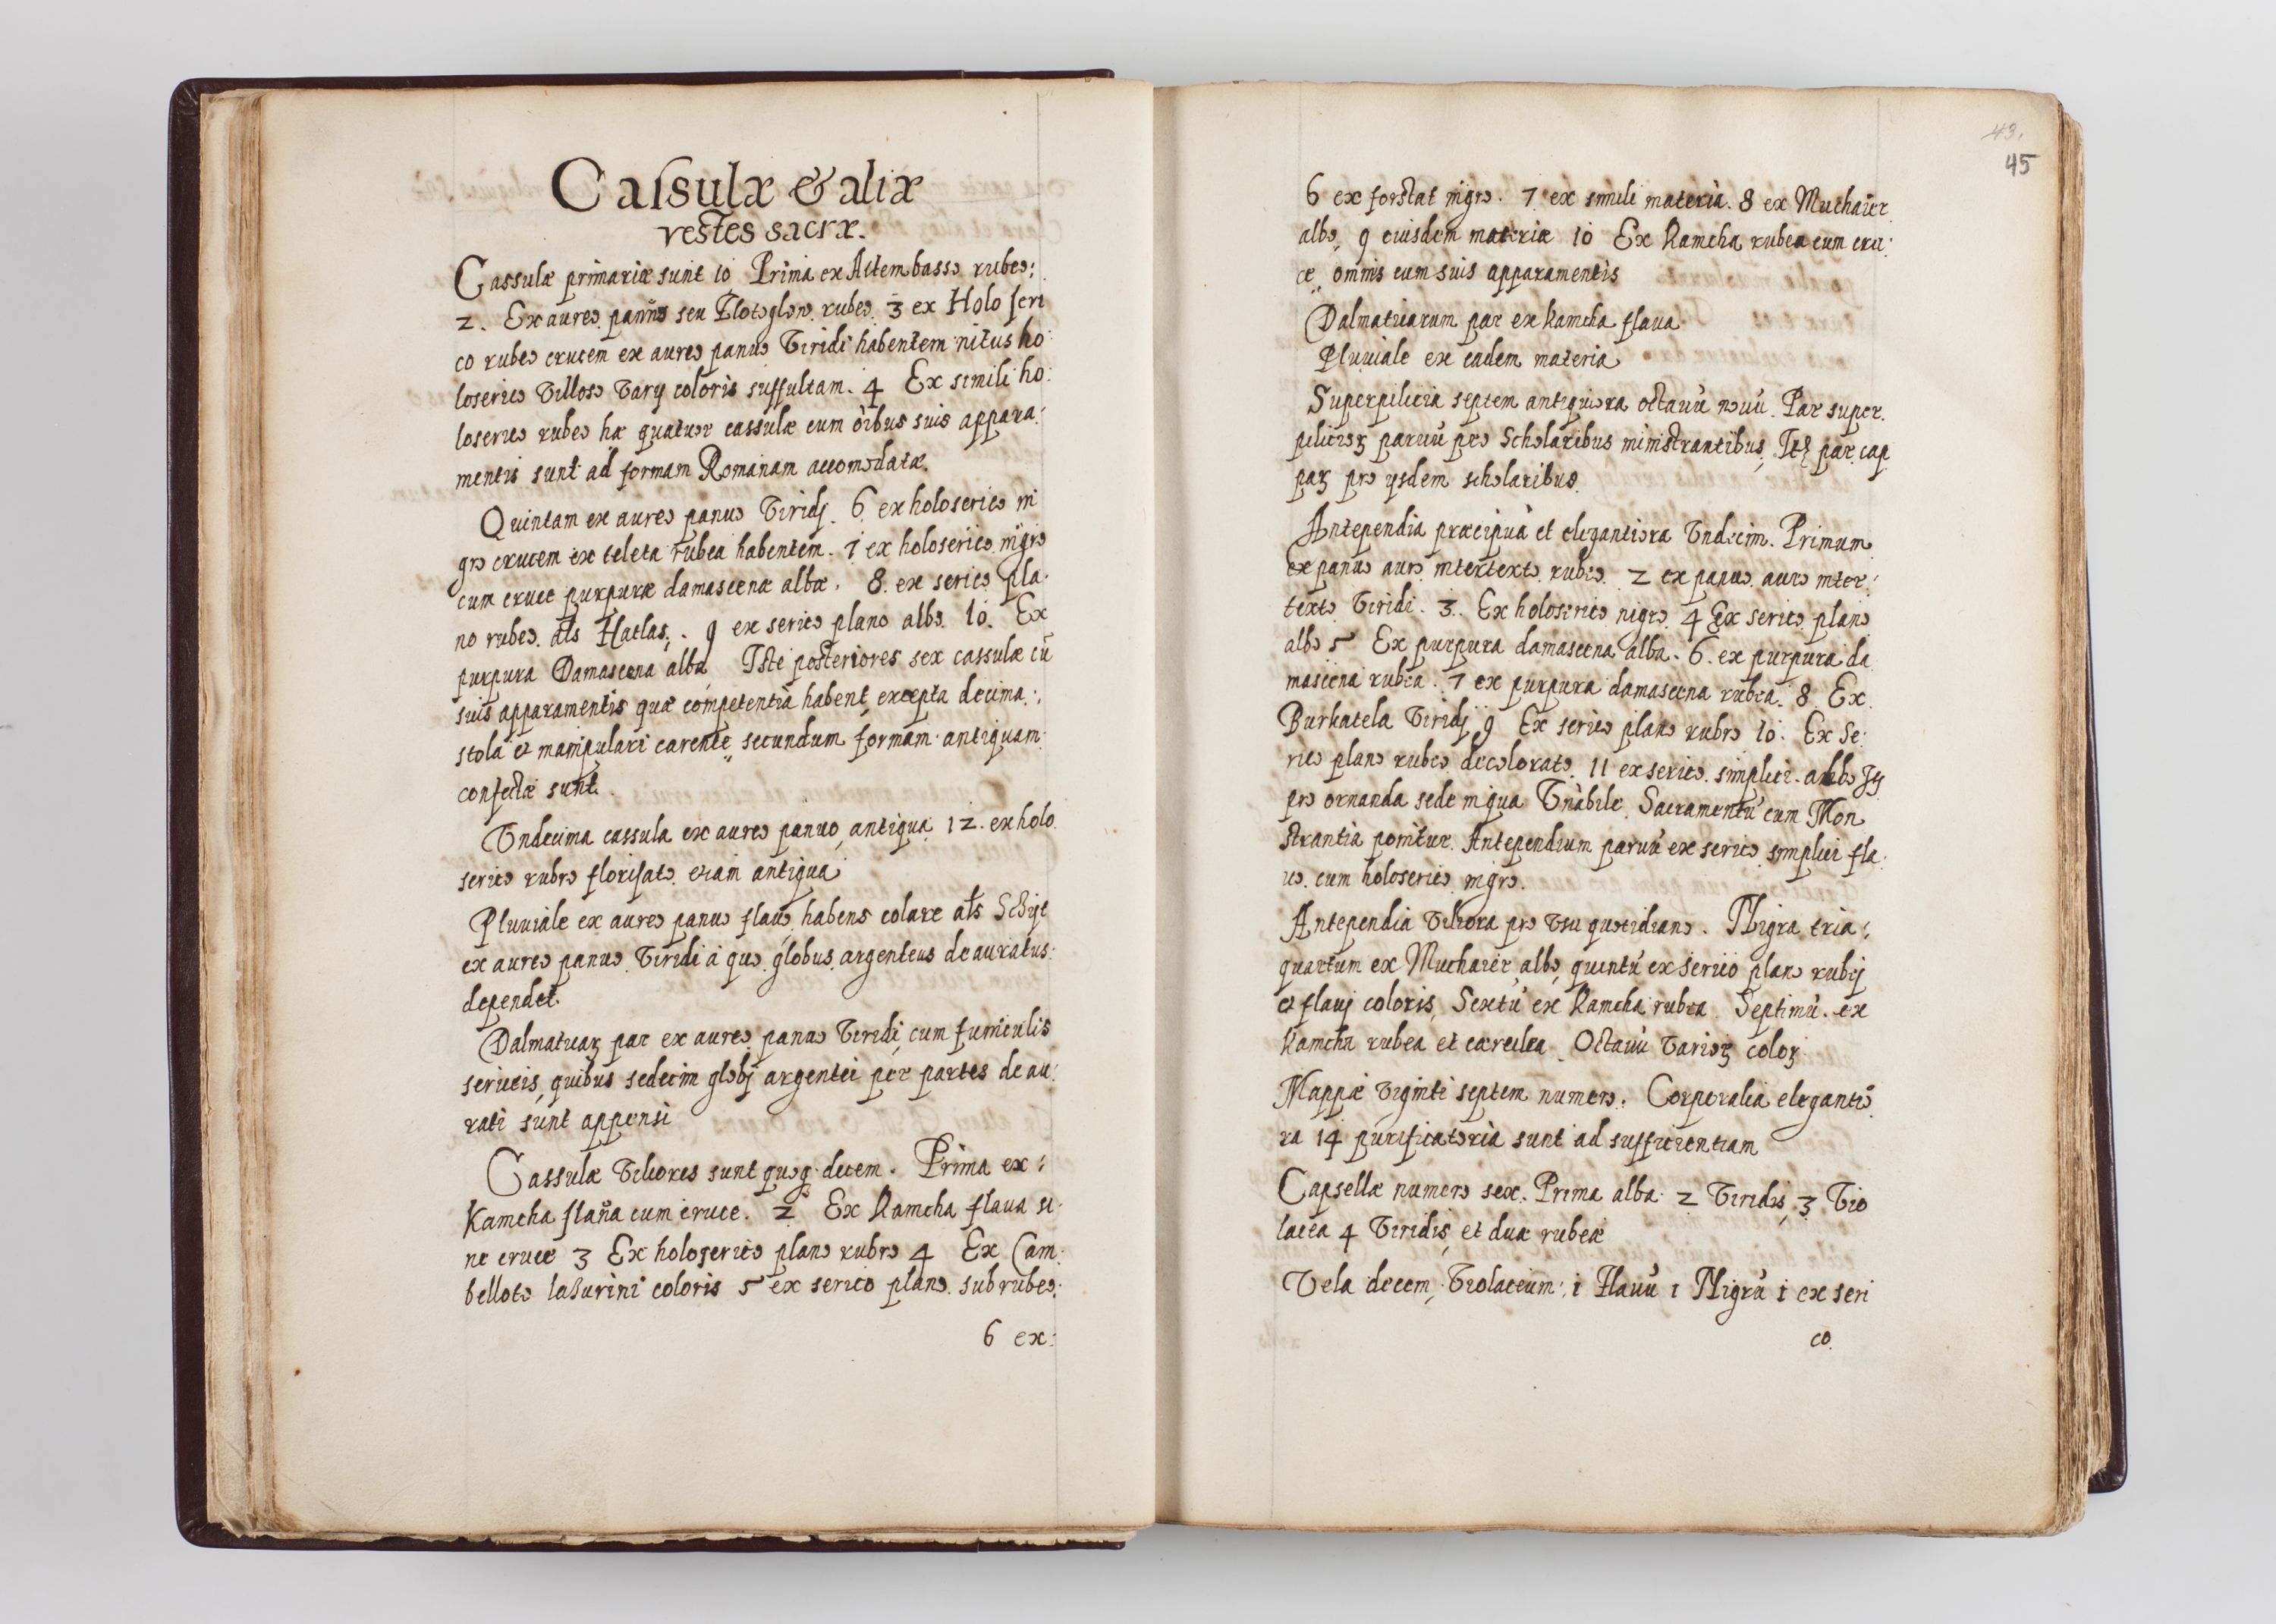 Casulæ & aliæ
vestes sacræ.
Cassulæ primariæ sunt 10 Prima ex Altembasso rubeo;
2. Ex aureo panno seu Zlotoglow rubeo. 3 ex Holo seri
co rubeo crucem ex aureo panno viridi habentem nitus ho:
loserico villoso varij coloris suffultam. 4 Ex simili ho:
loserico rubeo hæ quatuor cassulæ cum oibus suis appara:
mentis sunt ad formam Romanam accomodatæ.
Quintam ex aureo panno viridj. 6 ex holoserico ni
gro crucem ex teleta rubea habentem. 7 ex holoserico nigro
cum cruce purpuræ damascenæ albæ. 8. ex serico pla:
no rubeo. als Hatlas;. 9 ex serico plano albo. 10. Ex
purpura Damascena alba Iste posteriores sex cassulæ cū
suis apparamentis quæ competentia habent, excepta decima:,
stola et manipulari carente,, secundum formam antiquam
confectæ sunt.
Vndecima cassula ex aureo panno, antiqua 12. ex holo
serico rubro florisato etiam antiqua
Pluuiale ex aureo panno flauo, habens colare als Schijt
ex aureo panno viridi à quo globus argenteus deauratus:
dependet
Dalmaticaꝝ par ex aureo panno viridi, cum funiculis
sericeis, quibus sedecim globj argentei per partes deau:
rati sunt appensi
Cassulæ viliores sunt quoq decem. Prima ex:
Kamcha flaua cum cruce. 2 Ex Kamcha flaua si:
ne cruce 3 Ex holoserico plano rubro 4 Ex Cam:
belloto lasurini coloris 5 ex serico plano subrubeo:
6 ex:
43.
45
6 ex forstat nigro. 7 ex simili materia. 8 ex Muchaier
albo, 9 eiusdem materiæ 10 Ex Kamcha rubea cum cru:
ce,, omnis cum suis apparamentis
Dalmaticarum par ex kamcha flaua
Pluuiale ex eadem materia
Superpilicia septem antiquiora octauū nouū. Par super.
pelicioꝝ paruū pro Scholaribus ministrantibus, Itē par cap
paꝝ pro ijsdem scholaribus.
Antependia præcipua et elegantiora vndecim. Primum
ex panno auro intertexto rubeo. 2 ex panno auro inter:
texto viridi. 3. Ex holoserico nigro. 4 Ex serico plano
albo 5 Ex purpura damascena alba. 6. ex purpura da
mascena rubea. 7 ex purpura damascena rubea. 8 Ex
Burkatela viridj 9 Ex serico plano rubro 10: Ex Se:
rico plano rubeo decolorato. 11 ex serico simplici albo
pro ornanda sede in qua Vnabile Sacramentū cum Mon
strantia ponitur. Antependium paruū ex serico simplici fla:
uo. cum holoserico nigro.
Antependia viliora pro vsu quotidiano. Nigra tria:,
quartum ex Muchaier albo, quintū ex serico plano rubij
et flauj coloris, Sextū ex Kamcha rubea. Septimū. ex
Kamcha rubea et cærulea. Octauū varioꝝ coloꝝ
Mappæ viginti septem numero. Corporalia elegantio
ra 14 purificatoria sunt ad sufficientiam
Capsellæ numero sex. Prima alba 2 viridis, 3 vio
lacea 4 viridis, et duæ rubeæ
Vela decem, violaceum: 1 Flauū 1 Nigrū 1 ex seri
co.